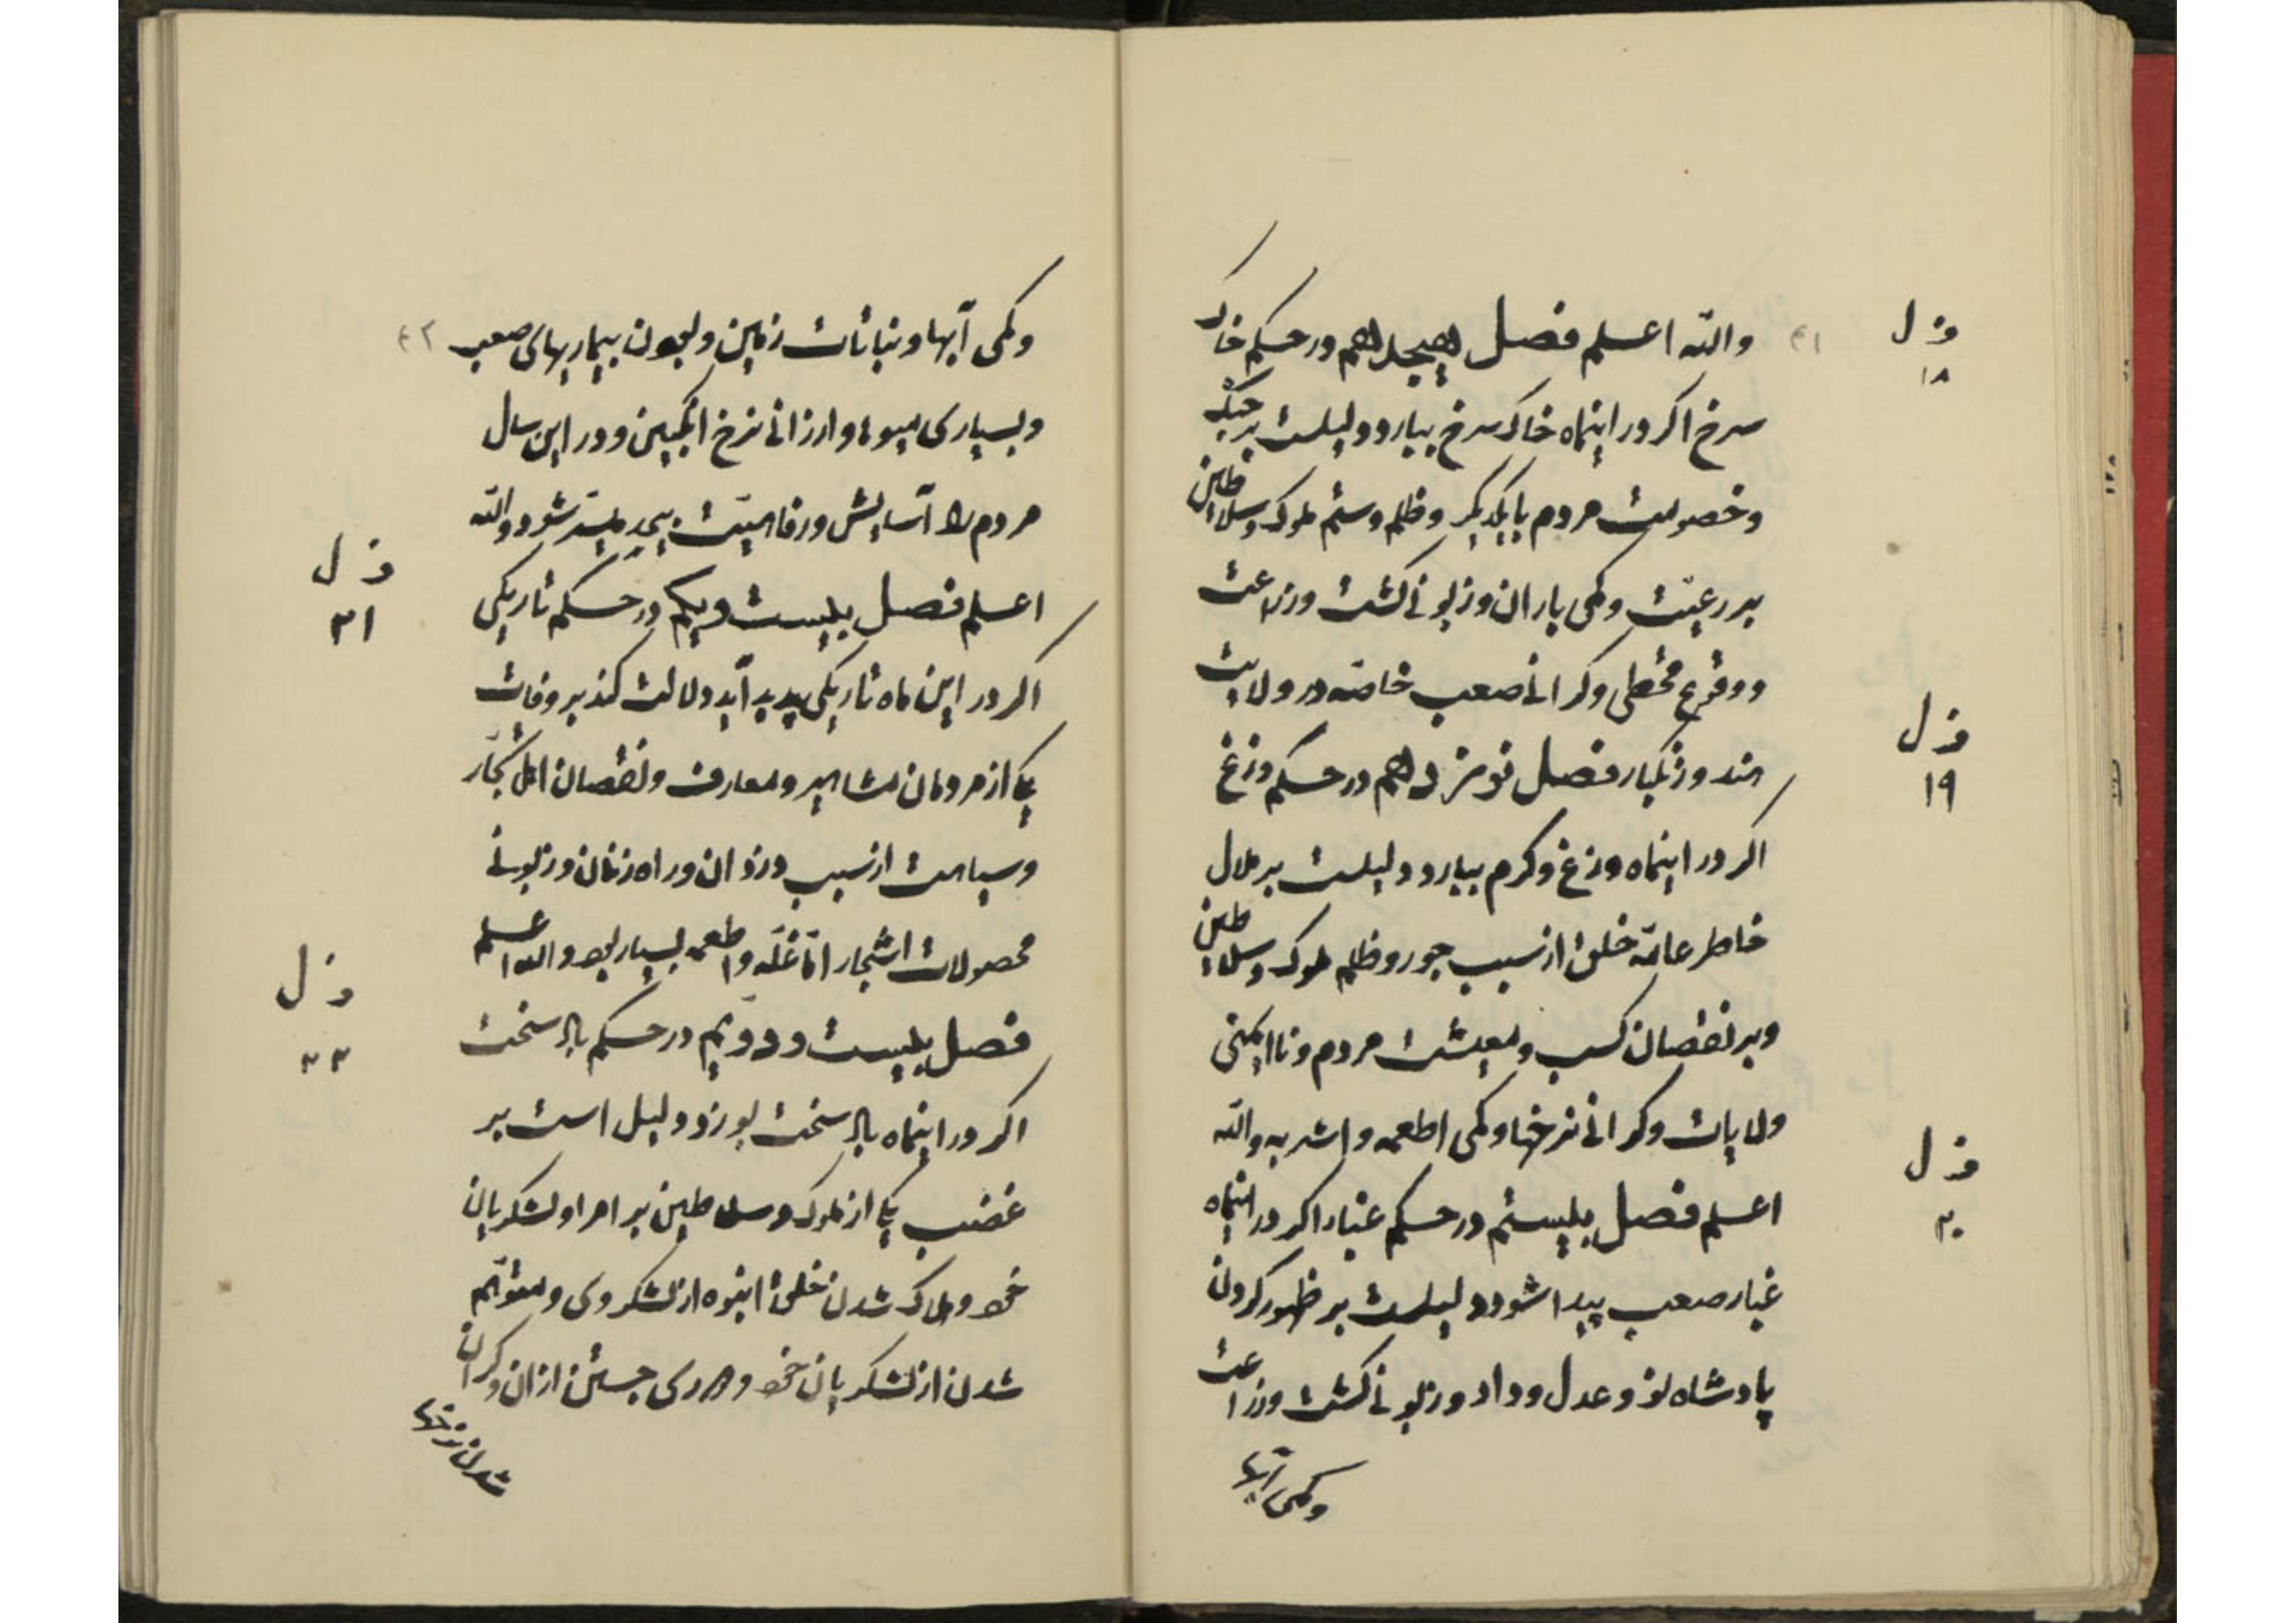 والله اعلم فصل هیجدهم در حکم خاک
سرخ اکر در اینماه خاک سرخ ببارد دلیلست بر جنک
و خصومت مردم با یکدیکر و ظلم و ستم ملوک و سلاطین
بر رعیّت و کمی باران و زبونی کشت و زراعت
و وقوع قحطی و کرانی صعب خاصّه در ولایت
هند و زنکبار فصل نوزدهم در حکم وزغ
اکر در اینماه وزغ و کرم ببارد دلیلست بر ملال
خاطر عامّه خلق از سبب جور و ظلم ملوک و سلاطین
و بر نقصان کسب و معیشت مردم و ناایمنی
ولایات و کرانی نرخها و کمی اطعمه و اشربه والله
اعلم فصل بیستم در حکم غبار اکر در اینماه
غبار صعب پیدا شود دلیلست بر ظهور کردن
پادشاه نو و عدل و داد و زبونی کشت و زراعت
و کمی آبها
ف ل
۱۸
ف ل
۱۹
ف ل
۲۰
۴۱
و کمی آبها و نباتات زمین و بیماریهای صعب
و بسیاری میوها و ارزانی نرخ انکبین و در این سال
مردم را آسایش و رفاهیّت بیحد میسّر شود والله
اعلم فصل بیست و یکم در حکم تاریکی
اکر در این ماه تاریکی پدید آید دلالت کند بر وفات
یکی از مردمان مشاهیر و معارف و نقصان اهل تجّار
و سیاحت از سبب دزدان و راه زنان و زبونی
محصولات اشجار امّا غلّه و اطعمه بسیار بود والله اعلم
فصل بیست و دویم در حکم باد سخت
اکر در اینماه باد سخت بوزد دلیل است بر
غضب یکی از ملوک و سلاطین بر امرا و لشکریان
خود و هلاک شدن خلق انبوه از لشکر وی و متوهّم
شدن از لشکریان خود و دوری جستن از ان و کران
شدن نرخها
ف ل
۲۱
ف ل
۲۲
۴۲